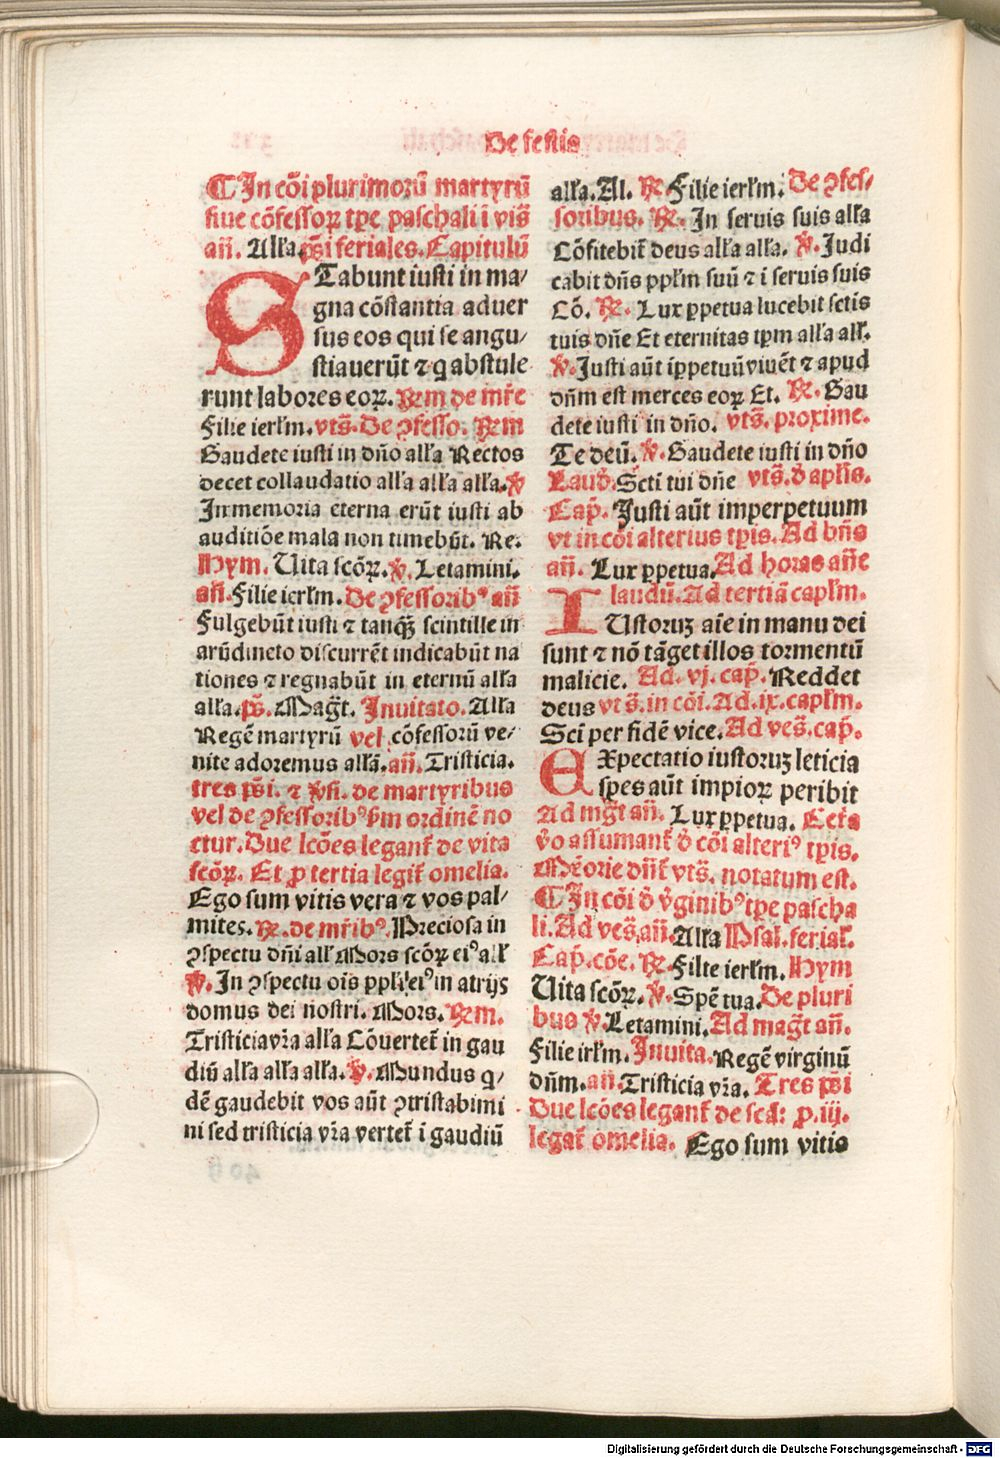 De festis
¶ In cōi plurimorū martyrū
siue cōfessoꝝ tp̄e paschali i vis̄
an̄. Alľa. ps̄i feriales. Capitulū
STabunt iusti in ma-
gna cōstantia aduer
sus eos qui se angu-
stiauerūt ⁊ q̄ abstule
runt labores eoꝝ. ℞m de mr̄e
Filie ierľm. vts̄. De ꝯfesso. ℞m
Gaudete iusti in dn̄o alľa Rectos
decet collaudatio alľa alľa alľa. ℣
In memoria eterna erūt iusti ab
auditiōe mala non timebūt. Re.
Hym. Uita scōꝝ. ℣. Letamini.
an̄. Filie ierľm. De ꝯfessoribꝰ an̄
Fulgebūt iusti ⁊ tanq̄ȝ scintille in
arūdineto discurrēt indicabūt na
tiones ⁊ regnabūt in eternū alľa
alľa. ps̄. Mag̃t. Inuitato. Alľa
Regē martyrū vel cōfessorū ve-
nite adoremus alľa. an̄. Tristicia.
tres ps̄i. ⁊ ℣si. de martyribus
vel de ꝯfessoribꝰ ẜm ordinē no
ctur. Due lcōes legant̄ de vita
scōꝝ. Et ꝓ tertia legit̄ omelia.
Ego sum vitis vera ⁊ vos pal-
mites. ℞. de mr̄ibꝰ. Preciosa in
ꝯspectu dn̄i alľ Mors scōꝝ eiꝰ alľ
℣. In ꝯspectu oīs ppľi eiꝰ in atrijs
domus dei nostri. Mors. ℞m.
Tristicia vr̄a alľa Cōuertet̄ in gau
diū alľa alľa alľa. ℣. Mundus q-
dē gaudebit vos aūt ꝯtristabimi
ni sed tristicia vr̄a vertet̄ i gaudiū
alľa. Al. ℞ Filie ierľm. De ꝯfes-
soribus. ℞. In seruis suis alľa
Cōsitebit̄ deus alľa alľa. ℣. Judi
cabit dn̄s ppľm suū ⁊ i seruis suis
Cō. ℞. Lux ꝑpetua lucebit sctīs
tuis dn̄e Et eternitas tp̄m alľa alľ.
℣. Justi aūt īꝑpetuū viuēt ⁊ apud
dn̄m est merces eoꝝ Et. ℞. Gau
dete iusti in dn̄o. vts̄. proxime.
Te deū. ℣. Gaudete iusti in dn̄o
Laud̄. Sctī tui dn̄e vts̄. d̄ apľis.
Cap̄. Justi aūt imperpetuum
vt in cōi alterius tp̄is. Ad bn̄s
an̄. Lux ꝑpetua. Ad horas an̄e
laudū. Ad tertiā capľm.
IUstoruȝ aīe in manu dei
sunt ⁊ nō tāget illos tormentū
malicie. Ad. vj. cap̄. Reddet
deus vts̄. in cōi. Ad. ix. capľm.
Sci per fidē vice. Ad ves̄. cap̄.
EXpectatio iustoruȝ leticia
spes aūt impioꝝ peribit
Ad mg̃t an̄. Lux ꝑpetua. Cet̄a
v̄o assumant̄ d̄ cōi alteriꝰ tp̄is.
Mēorie dn̄t̄ vts̄. notatum est.
¶ In cōi d̄ v̄ginibꝰ tp̄e pascha
li. Ad ves̄. an̄. Alľa Psal. feriaľ.
Cap̄. cōe. ℞. Filie ierľm. Hym
Uita scōꝝ. ℣. Spē tua. De pluri
bus ℣. Letamini. Ad mag̃t an̄.
Filie irľm. Inuita. Regē virginū
dn̄m. an̄. Tristicia vr̄a. Tres ps̄i
Due lcōes legant̄ de scā: ꝓ. iij.
legat̄ omelia. Ego sum vitis
Digitalisierung gefördert durch die Deutsche Forschungsgemeinschaft - DFG